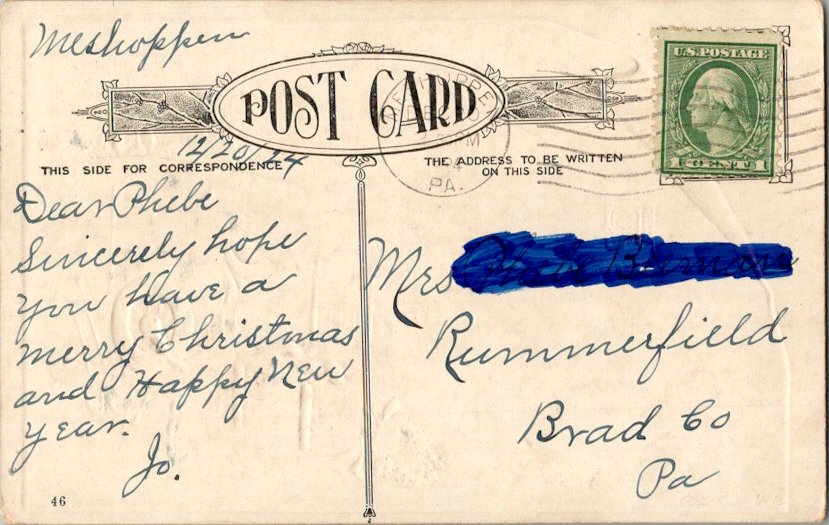 Meshoppen
POST CARD
U.S. POSTAGE
1 CENT 1
12/20/24
THIS SIDE FOR CORRESPONDENCE
THE ADDRESS TO BE WRITTEN
ON THIS SIDE
PA.
Dear Phebe
Sincerely hope
you have a
merry Christmas
and Happy New
year.
Jo.
Mrs
Rummerfield
Brad Co
Pa
46